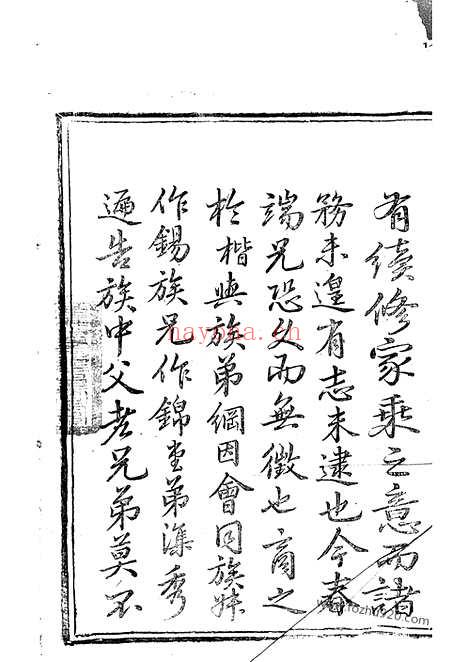 有續修家乘之意而諸
務未遑有志未逮也今春
端兄恐久而無徵也商之
於楷與族弟綱因會同族姪
作錫族兄作錦堂弟漢秀
遍告族中父老兄弟莫不